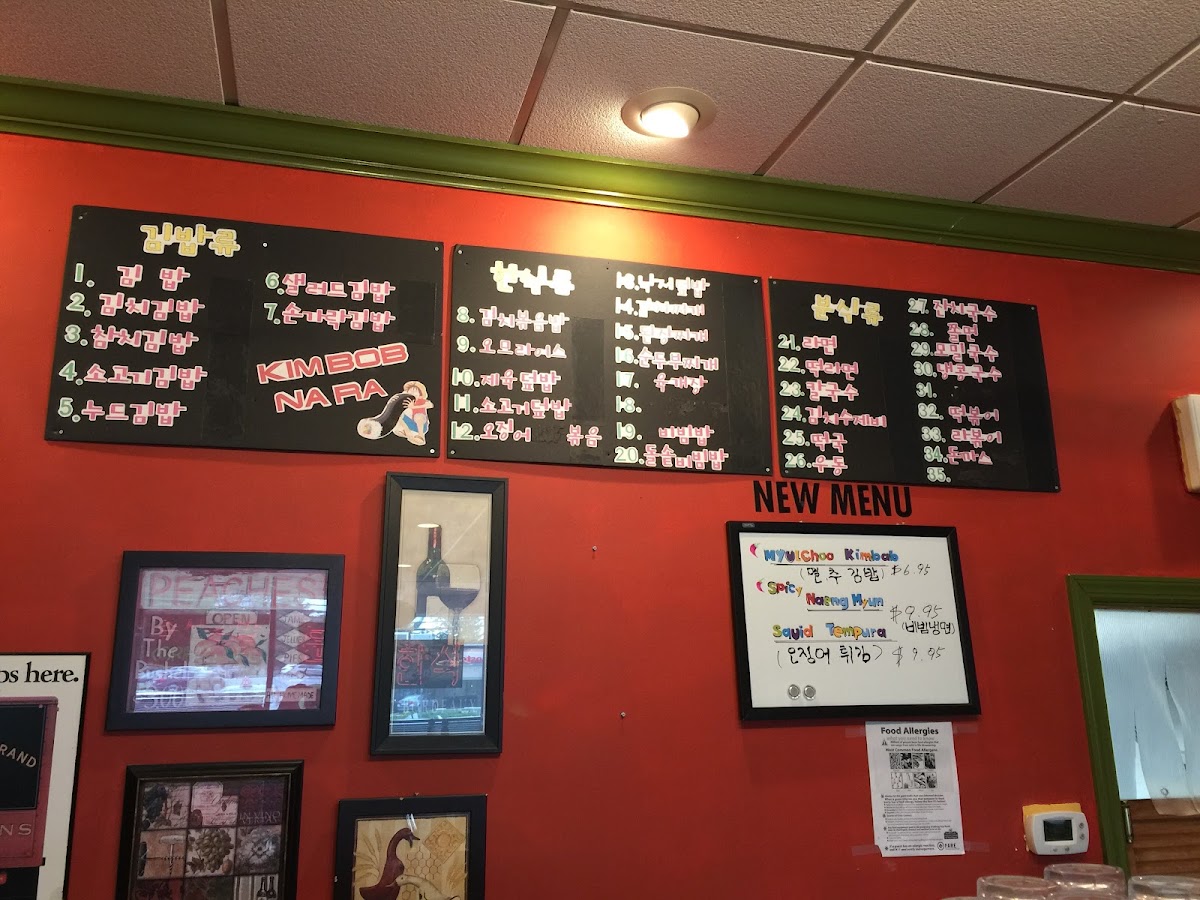 김밥류
1. 김 밥
2. 김치김밥
3. 참치김밥
4. 소고기김밥
5. 누드김밥
6. 샐러드김밥
7. 손가락김밥
KIM BOB
NA RA
분식류
8. 김치볶음밥
9. 오므라이스
10. 제육덮밥
11. 소고기덮밥
12. 오징어 볶음
13. 낙지덮밥
14. 김치찌개
15. 된장찌개
16. 순두부찌개
17. 육개장
18.
19. 비빔밥
20. 돌솥비빔밥
분식류
21. 라면
22. 떡라면
23. 칼국수
24. 김치수제비
25. 떡국
26. 우동
27. 잔치국수
28. 쫄면
29. 모밀국수
30. 냉콩국수
31.
32. 떡볶이
33. 라볶이
34. 돈까스
35.
NEW MENU
Myulchoo Kimbab
(멸.추 김밥) $6.95
Spicy
Naeng Myun $9.95
(비빔냉면)
Squid Tempura
(오징어 튀김) $9.95
Food Allergies
Most Common Food Allergens
PEACHES
OPEN
By
The
os here.
RAND
NS